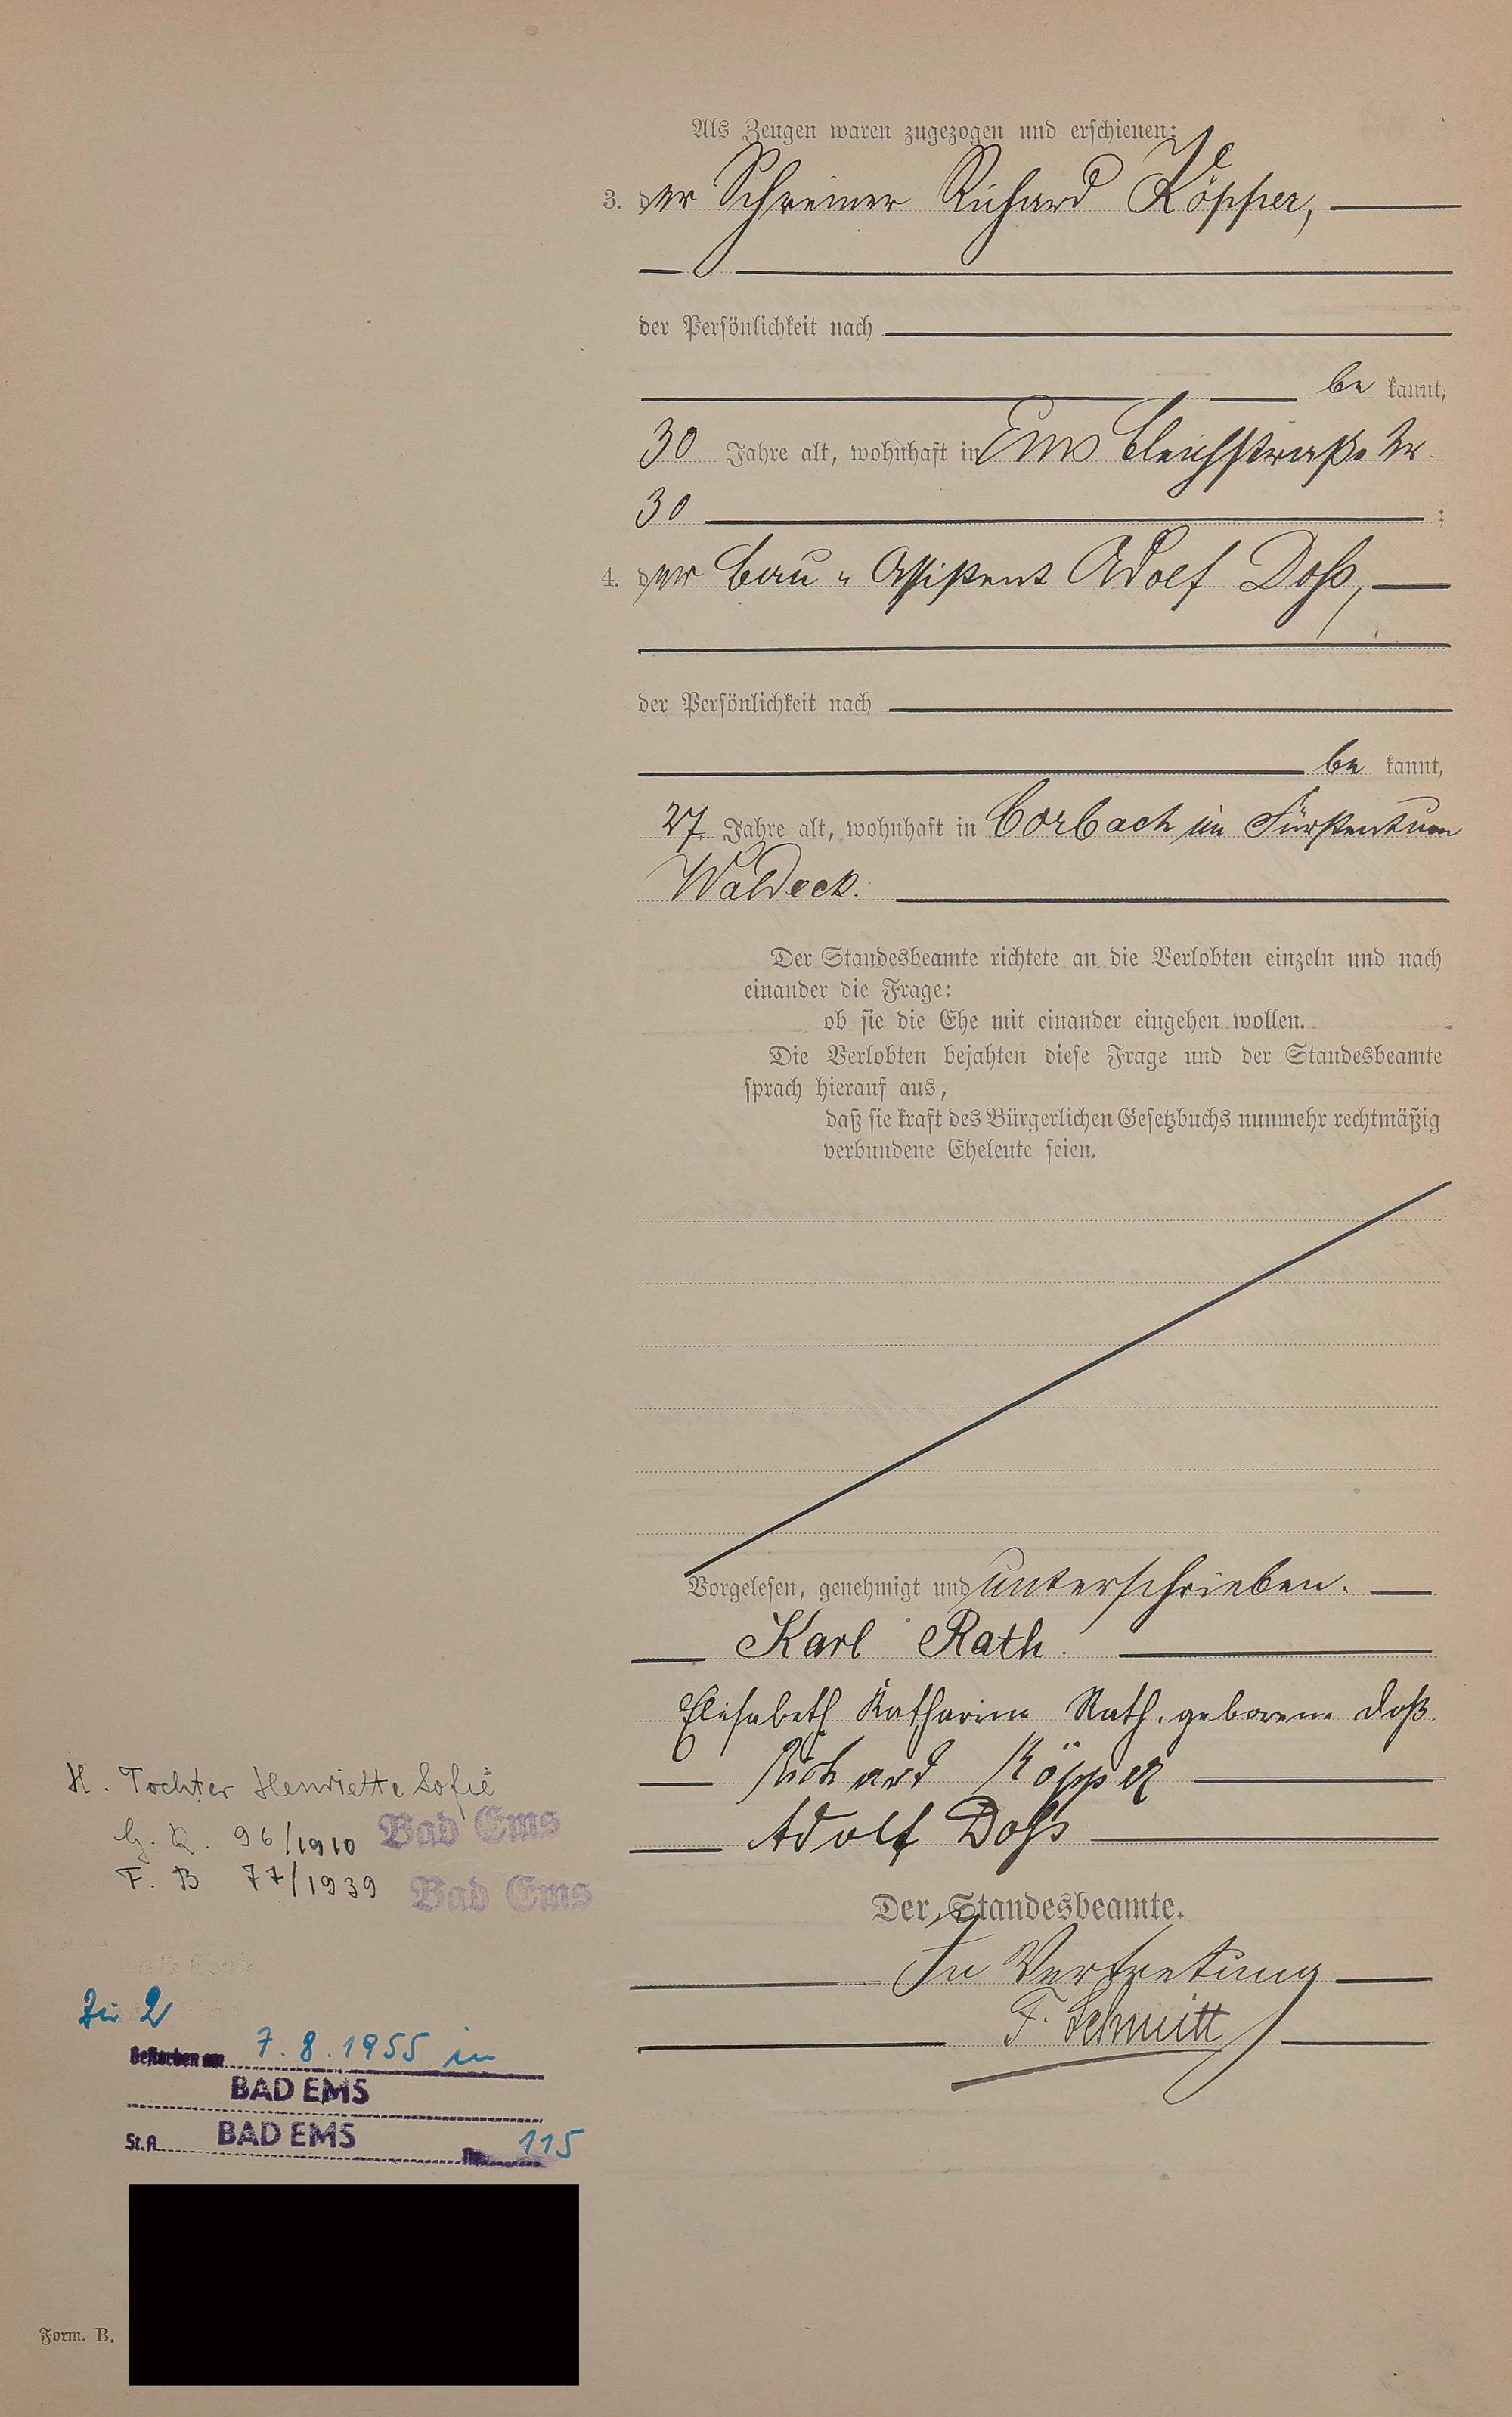 Als Zeugen waren zugezogen und erschienen:
3. der Schreiner Richard Köpper,
der Persönlichkeit nach
be kannt,
30 Jahre alt, wohnhaft in Ems Bleichstraße Nr
30 ;
4. der Bau-Assistent Adolf Doß,
der Persönlichkeit nach
be kannt,
27 Jahre alt, wohnhaft in Corbach im Fürstentum
Waldeck.
Der Standesbeamte richtete an die Verlobten einzeln und nach
einander die Frage:
ob sie die Ehe mit einander eingehen wollen.
Die Verlobten bejahten diese Frage und der Standesbeamte
sprach hierauf aus,
daß sie kraft des Bürgerlichen Gesetzbuchs nunmehr rechtmäßig
verbundene Eheleute seien.
Vorgelesen, genehmigt und unterschrieben.
Karl Rath.
Elisabeth Katharine Rath, geborene Doß.
Richard Köpper
Adolf Doß
Der Standesbeamte.
In Vertretung
F. Schmitt
H. Tochter Henriette Sofie
G. R. 96/1910 Bad Ems
F. B 77/1939 Bad Ems
Zu 2
Gestorben am 7.8.1955 in
BAD EMS
St.A. BAD EMS Nr. 115
Form. B.